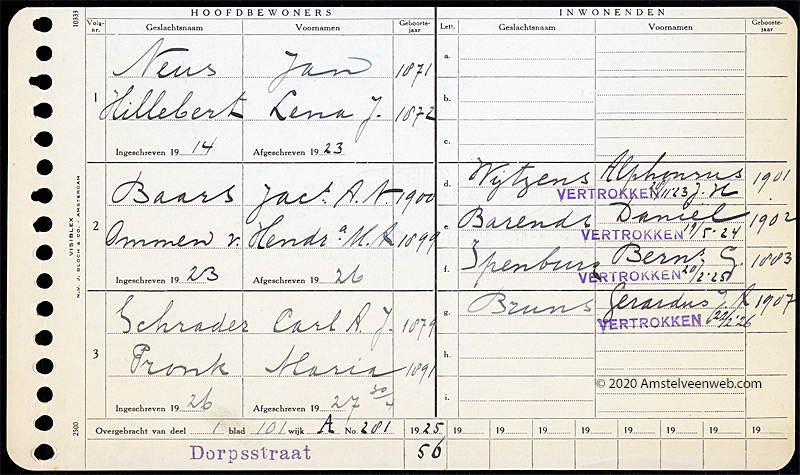 HOOFDBEWONERS
INWONENDEN
10333
Volg-nr.
Geslachtsnaam
Voornamen
Geboorte-jaar
Lett.
Geslachtsnaam
Voornamen
Geboorte-jaar
1
Neus Jan 1871
Hillebert Lena J. 1872
Ingeschreven 19 14 Afgeschreven 19 23
2
Baars Jac. A. N. 1900
Ommen v. Hendr a M. A 1899
Ingeschreven 19 23 Afgeschreven 19 26
3
Schrader Carl A. J. 1879
Pronk Maria 1891
Ingeschreven 19 26 Afgeschreven 19 27 30/4
a.
b.
c.
d. Wijtzens Alphonsus 1901
VERTROKKEN 11 '23 J. H
e. Barends Daniel 1902
VERTROKKEN 19/5-24
f. Spenburg Bern. G. 1883
VERTROKKEN 20/2-25
g. Bruns Gerardus J. A 1907
VERTROKKEN 22/2 '26
h.
i.
© 2020 Amstelveenweb.com
VISIBLEX
N.V. J. BLOCH & CO. - AMSTERDAM
2500
Overgebracht van deel 1 blad 101 wijk A No. 281 19 25 19 19 19 19 19 19 19 19
Dorpsstraat 56